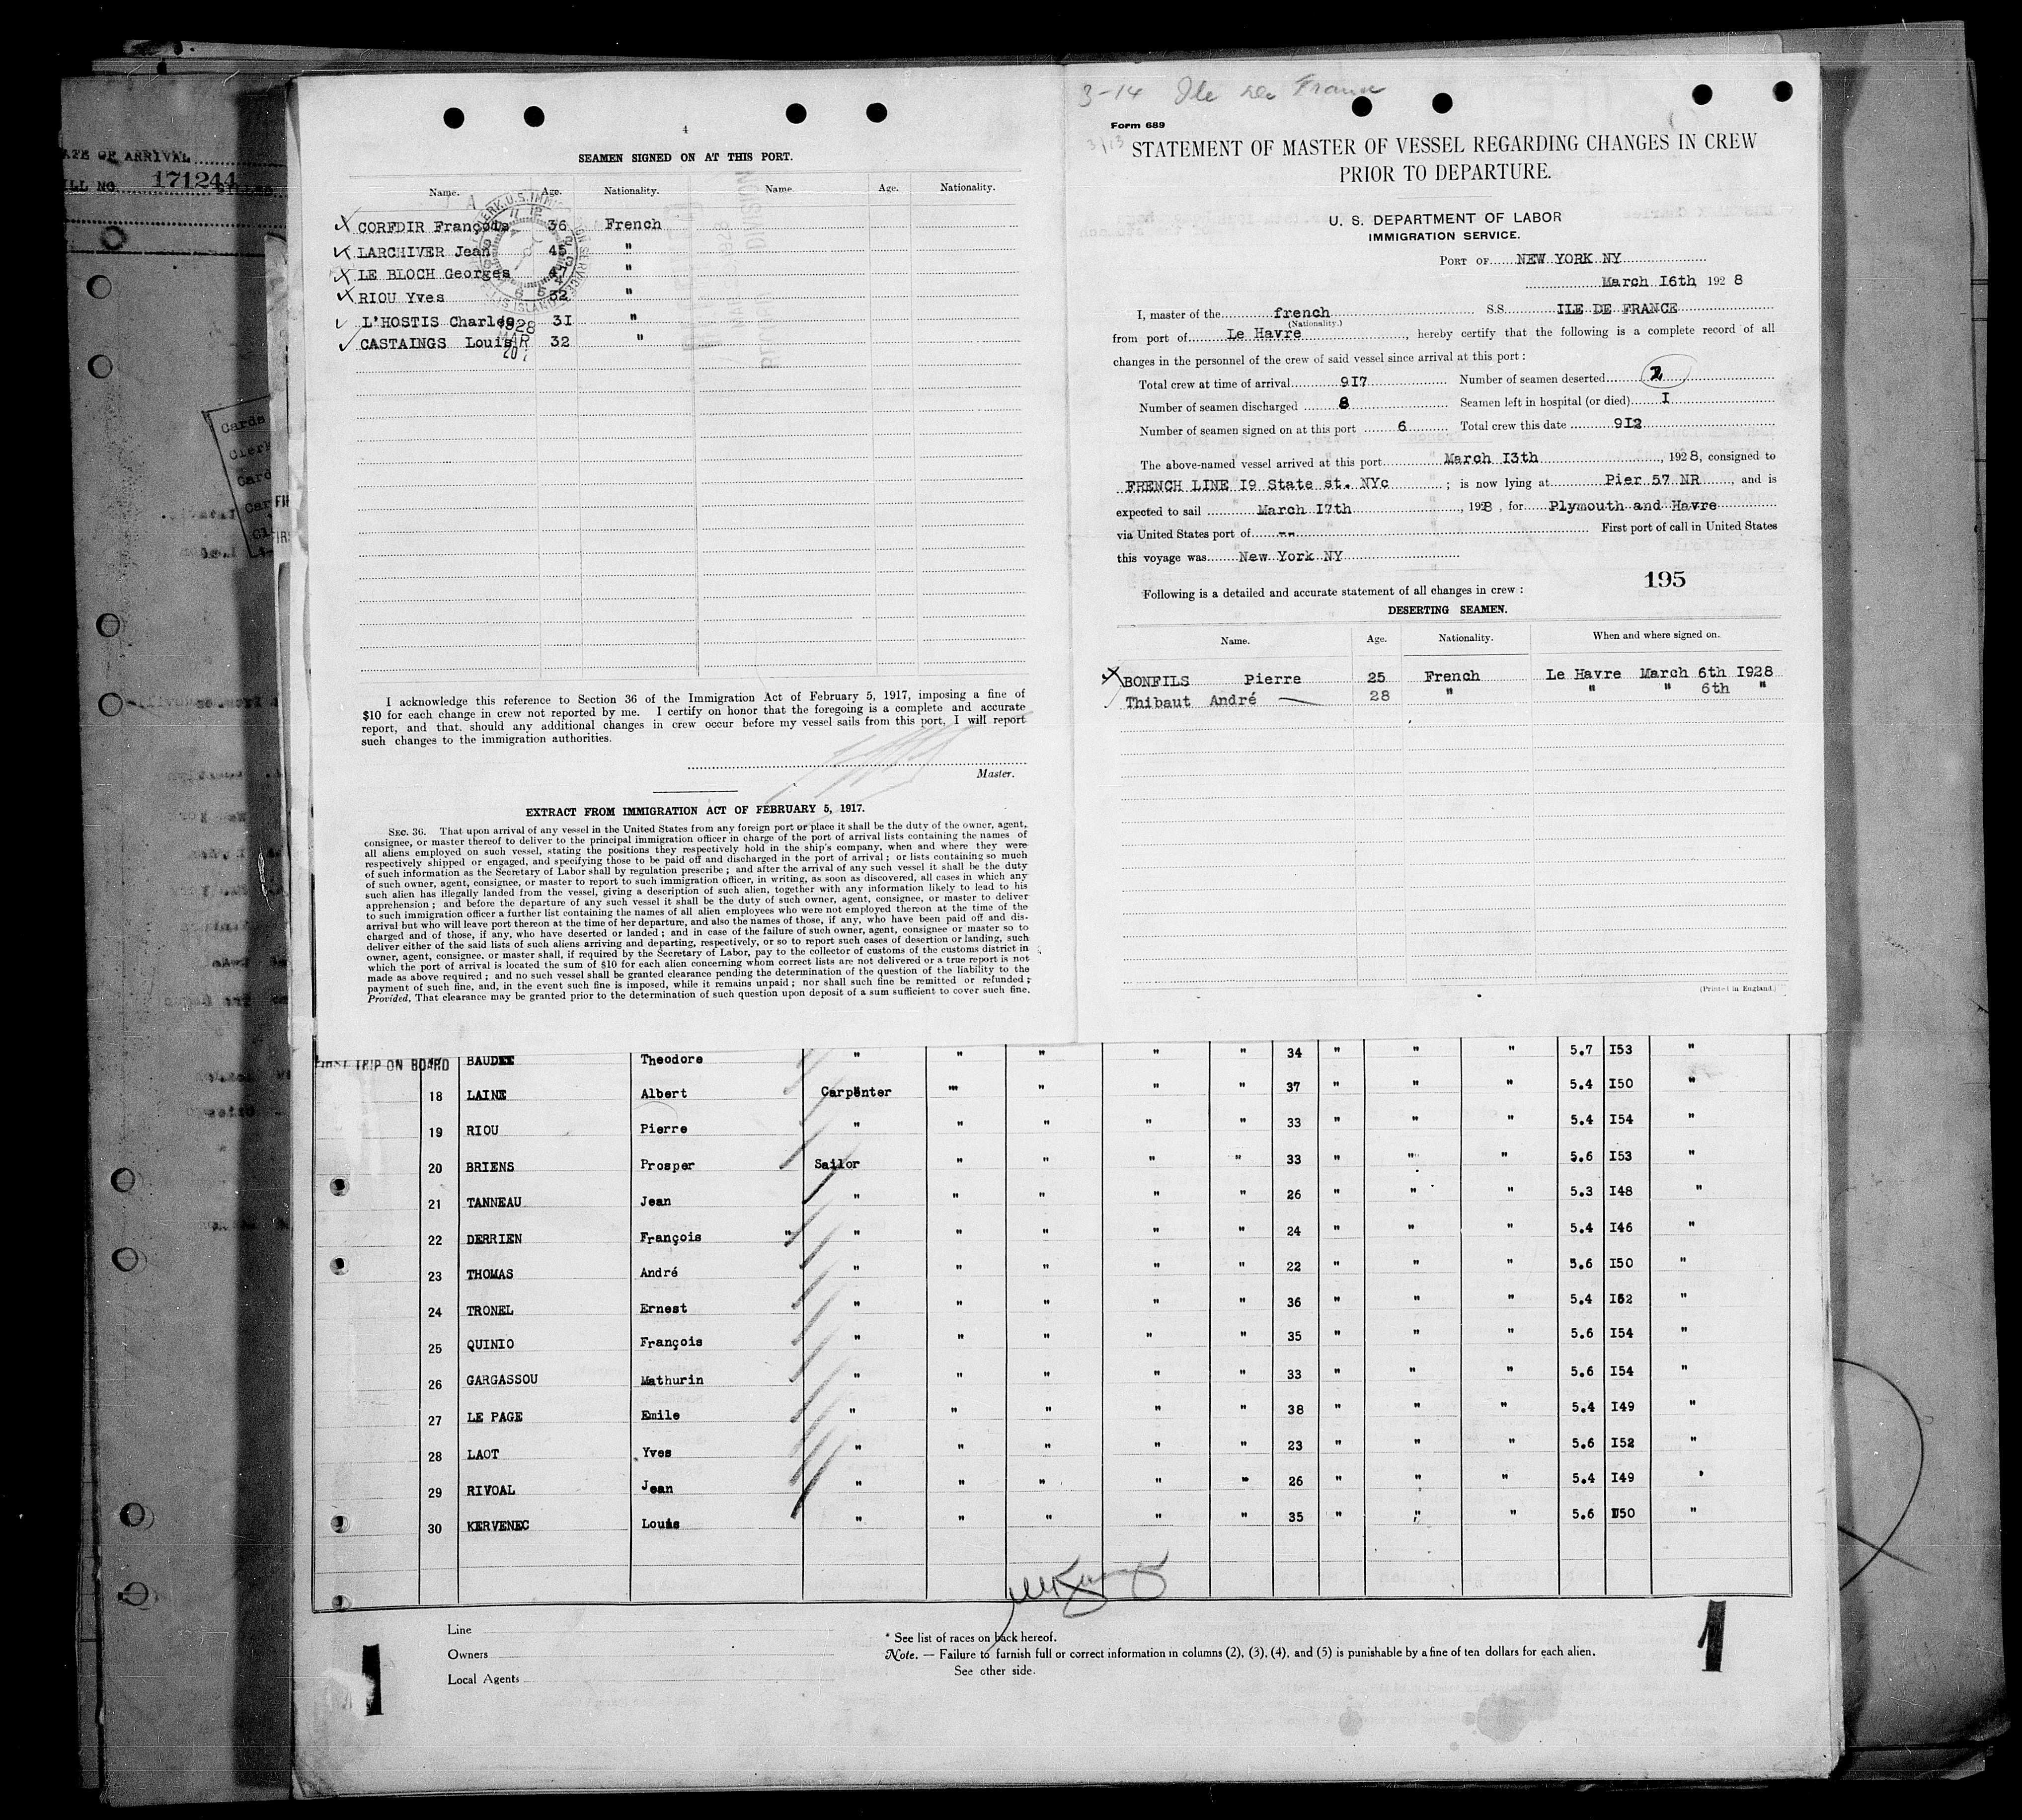 ATE OF ARRIVAL
ILL NO. 171244
4
SEAMEN SIGNED ON AT THIS PORT.
Name. Age. Nationality. Name. Age. Nationality.
CORFDIR François 36 French
LARCHIVER Jean 45 "
LE BLOCH Georges 47 "
RIOU Yves 32 "
L'HOSTIS Charles 31 "
CASTAINGS Louis 32 "
1928
MAR
20
I acknowledge this reference to Section 36 of the Immigration Act of February 5, 1917, imposing a fine of
$10 for each change in crew not reported by me. I certify on honor that the foregoing is a complete and accurate
report, and that should any additional changes in crew occur before my vessel sails from this port, I will report
such changes to the immigration authorities.
Master.
EXTRACT FROM IMMIGRATION ACT OF FEBRUARY 5, 1917.
SEC. 36. That upon arrival of any vessel in the United States from any foreign port or place it shall be the duty of the owner, agent,
consignee, or master thereof to deliver to the principal immigration officer in charge of the port of arrival lists containing the names of
all aliens employed on such vessel, stating the positions they respectively hold in the ship's company, when and where they were
respectively shipped or engaged, and specifying those to be paid off and discharged in the port of arrival; or lists containing so much
of such information as the Secretary of Labor shall by regulation prescribe; and after the arrival of any such vessel it shall be the duty
of such owner, agent, consignee, or master to report to such immigration officer, in writing, as soon as discovered, all cases in which any
such alien has illegally landed from the vessel, giving a description of such alien, together with any information likely to lead to his
apprehension; and before the departure of any such vessel it shall be the duty of such owner, agent, consignee, or master to deliver
to such immigration officer a further list containing the names of all alien employees who were not employed thereon at the time of the
arrival but who will leave port thereon at the time of her departure, and also the names of those, if any, who have been paid off and dis-
charged and of those, if any, who have deserted or landed; and in case of the failure of such owner, agent, consignee or master so to
deliver either of the said lists of such aliens arriving and departing, respectively, or so to report such cases of desertion or landing, such
owner, agent, consignee, or master shall, if required by the Secretary of Labor, pay to the collector of customs of the customs district in
which the port of arrival is located the sum of $10 for each alien concerning whom correct lists are not delivered or a true report is not
made as above required; and no such vessel shall be granted clearance pending the determination of the question of the liability to the
payment of such fine, and, in the event such fine is imposed, while it remains unpaid; nor shall such fine be remitted or refunded;
Provided, That clearance may be granted prior to the determination of such question upon deposit of a sum sufficient to cover such fine.
3-14 Ile de France
Form 689
3/13
STATEMENT OF MASTER OF VESSEL REGARDING CHANGES IN CREW
PRIOR TO DEPARTURE.
U. S. DEPARTMENT OF LABOR
IMMIGRATION SERVICE.
PORT OF NEW YORK NY
March 16th, 1928
I, master of the french S.S. ILE DE FRANCE
(Nationality.)
from port of Le Havre, hereby certify that the following is a complete record of all
changes in the personnel of the crew of said vessel since arrival at this port:
Total crew at time of arrival 917 Number of seamen deserted 2
Number of seamen discharged 8 Seamen left in hospital (or died) I
Number of seamen signed on at this port 6 Total crew this date 912
The above-named vessel arrived at this port March 13th, 1928, consigned to
FRENCH LINE 19 State st. NYc ; is now lying at Pier 57 NR, and is
expected to sail March 17th, 1928, for Plymouth and Havre
via United States port of -- First port of call in United States
this voyage was New York NY
195
Following is a detailed and accurate statement of all changes in crew:
DESERTING SEAMEN.
Name. Age. Nationality. When and where signed on.
BONFILS Pierre 25 French Le Havre March 6th 1928
Thibaut André 28 " " " 6th "
(Printed in England.)
FIRST TRIP ON BOARD BAUDET Theodore " " " " " 34 " " " 5.7 153 "
18 LAINE Albert Carpenter " " " " 37 " " " 5.4 150 "
19 RIOU Pierre " " " " " 33 " " " 5.4 154 "
20 BRIENS Prosper Sailor " " " " 33 " " " 5.6 153 "
21 TANNEAU Jean " " " " " 26 " " " 5.3 148 "
22 DERRIEN François " " " " " " 24 " " " 5.4 146 "
23 THOMAS André " " " " " 22 " " " 5.6 150 "
24 TRONEL Ernest " " " " " 36 " " " 5.4 152 "
25 QUINIO François " " " " " 35 " " " 5.6 154 "
26 GARGASSOU Mathurin " " " " " 33 " " " 5.6 154 "
27 LE PAGE Emile " " " " " 38 " " " 5.4 149 "
28 LAOT Yves " " " " " 23 " " " 5.6 152 "
29 RIVOAL Jean " " " " " 26 " " " 5.4 149 "
30 KERVENEC Louis " " " " " 35 " " " 5.6 150 "
Line
Owners
Local Agents
* See list of races on back hereof.
Note. — Failure to furnish full or correct information in columns (2), (3), (4), and (5) is punishable by a fine of ten dollars for each alien.
See other side.
1
1